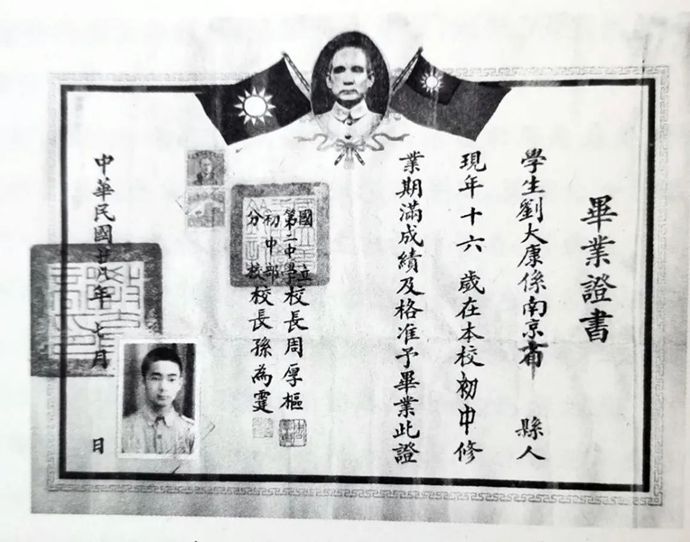 畢業證書
學生劉大康係南京市縣人
現年十六歲在本校初中修
業期滿成績及格准予畢業此證
國立第二中學校長周厚樞
初中部分校校長孫為霆
中華民國廿八年七月日